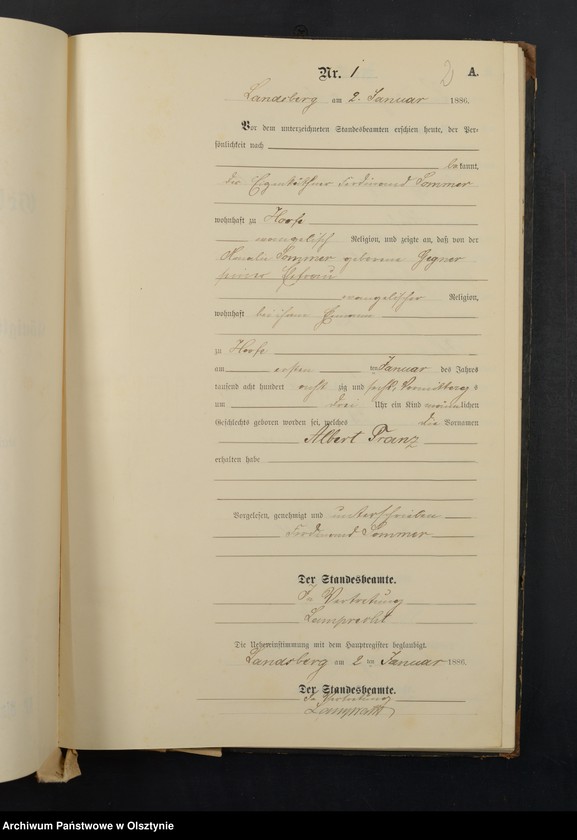 Nr. 1
2
A.
Landsberg am 2. Januar 1886.
Vor dem unterzeichneten Standesbeamten erschien heute, der Per-
sönlichkeit nach
bekannt,
der Eigenkäthner Ferdinand Sommer
wohnhaft zu Hoofe
evangelisch Religion, und zeigte an, daß von der
Amalie Sommer geborene Gegner
seiner Ehefrau
evangelischer Religion,
wohnhaft bei ihrem Ehemann
zu Hoofe
am ersten ten Januar des Jahres
tausend acht hundert acht zig und sechs, Vormittags
um drei Uhr ein Kind männlichen
Geschlechts geboren worden sei, welches die Vornamen
Albert Franz
erhalten habe
Vorgelesen, genehmigt und unterschrieben
Ferdinand Sommer
Der Standesbeamte.
In Vertretung
Lamprecht
Die Uebereinstimmung mit dem Hauptregister beglaubigt.
Landsberg am 2 ten Januar 1886.
Der Standesbeamte.
In Vertretung
Lamprecht
Archiwum Państwowe w Olsztynie